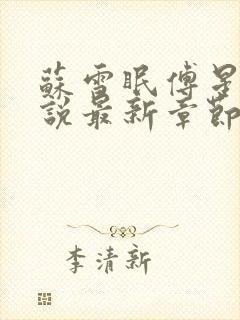 蘇雪眠傅是
說最新章節
李清新